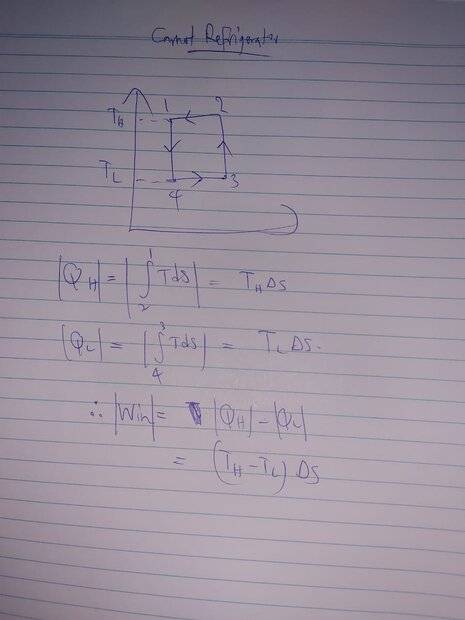 Carnot Refrigerator
T_H 1 2
T_L 4 3
|Q_H| = |∫₂¹ Tds| = T_H ΔS
|Q_L| = |∫₄³ Tds| = T_L ΔS.
∴ |Win| = |Q_H| - |Q_L|
= (T_H - T_L) ΔS